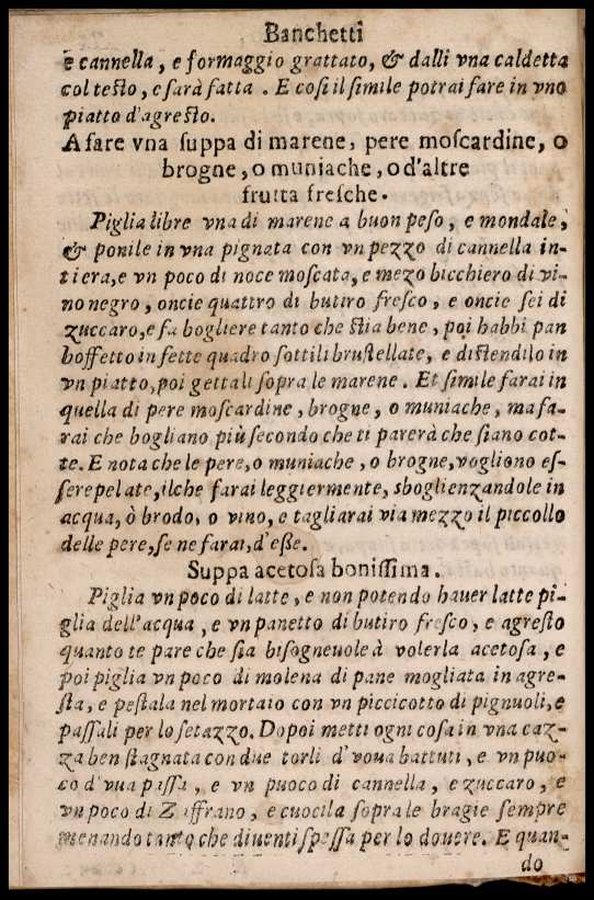 Banchetti
e cannella, e formaggio grattato, & dalli vna caldetta
col testo, e sarà fatta . E cosi il simile potrai fare in vno
piatto d'agresto.
A fare vna suppa di marene, pere moscardine, o
brogne, o muniache, o d'altre
frutta fresche.
Piglia libre vna di marene a buon peso, e mondale,
& ponile in vna pignata con vn pezzo di cannella in-
tiera, e vn poco di noce moscata, e mezo bicchiero di vi-
no negro, oncie quattro di butiro fresco, e oncie sei di
zuccaro, e fa bogliere tanto che stia bene, poi habbi pan
boffetto in fette quadro sottili brustellate, e distendilo in
vn piatto, poi gettali sopra le marene. Et simile farai in
quella di pere moscardine, brogne, o muniache, ma fa-
rai che bogliano più secondo che ti parerà che siano cot-
te. E nota che le pere, o muniache, o brogne, vogliono es-
sere pelate, ilche farai leggiermente, sboglienzandole in
acqua, ò brodo, o vino, e tagliarai via mezzo il piccollo
delle pere, se ne farai, d'esse.
Suppa acetosa bonissima.
Piglia vn poco di latte, e non potendo hauer latte pi-
glia dell'acqua, e vn panetto di butiro fresco, e agresto
quanto te pare che sia bisogneuole à volerla acetosa, e
poi piglia vn poco di molena di pane mogliata in agre-
sta, e pestala nel mortaio con vn piccicotto di pignuoli, e
passali per lo setazzo. Dopoi metti ogni cosa in vna caz-
za ben stagnata con due torli d'voua battuti, e vn puo-
co d'vua passa, e vn puoco di cannella, e zuccaro, e
vn poco di Zaffrano, e cuocila sopra le bragie sempre
menando tanto che diuenti spessa per lo douere. E quan-
do